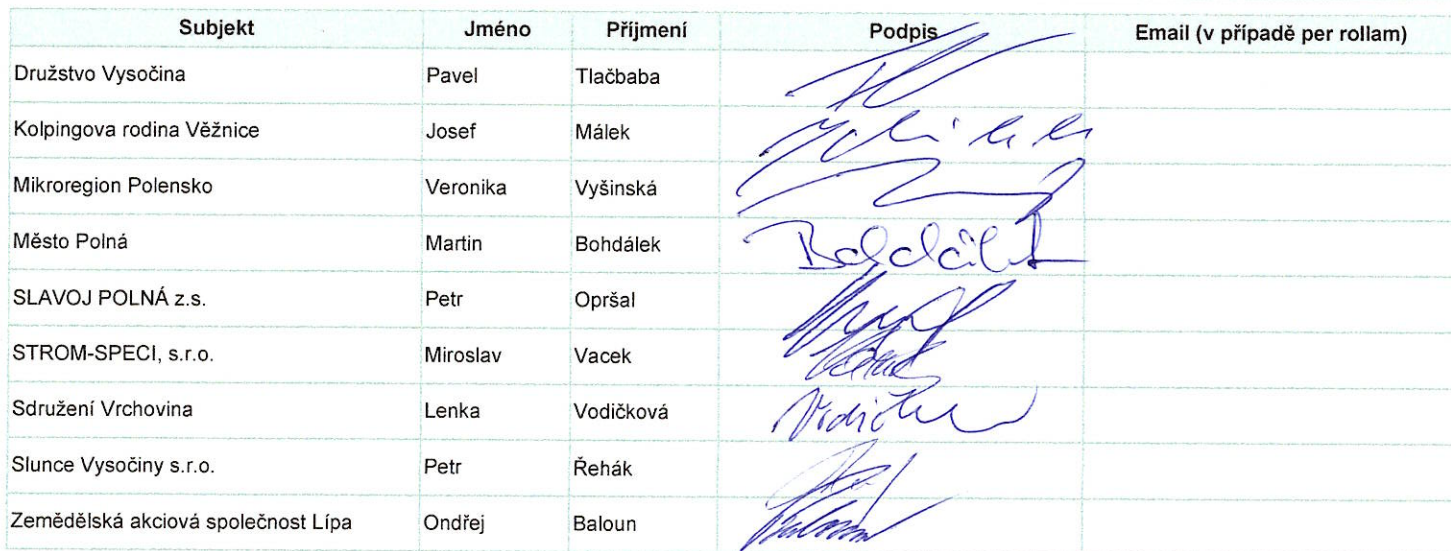 Subjekt Jméno Příjmení Podpis Email (v případě per rollam)
Družstvo Vysočina Pavel Tlačbaba
Kolpingova rodina Věžnice Josef Málek
Mikroregion Polensko Veronika Vyšinská
Město Polná Martin Bohdálek
SLAVOJ POLNÁ z.s. Petr Opršal
STROM-SPECI, s.r.o. Miroslav Vacek
Sdružení Vrchovina Lenka Vodičková
Slunce Vysočiny s.r.o. Petr Řehák
Zemědělská akciová společnost Lípa Ondřej Baloun